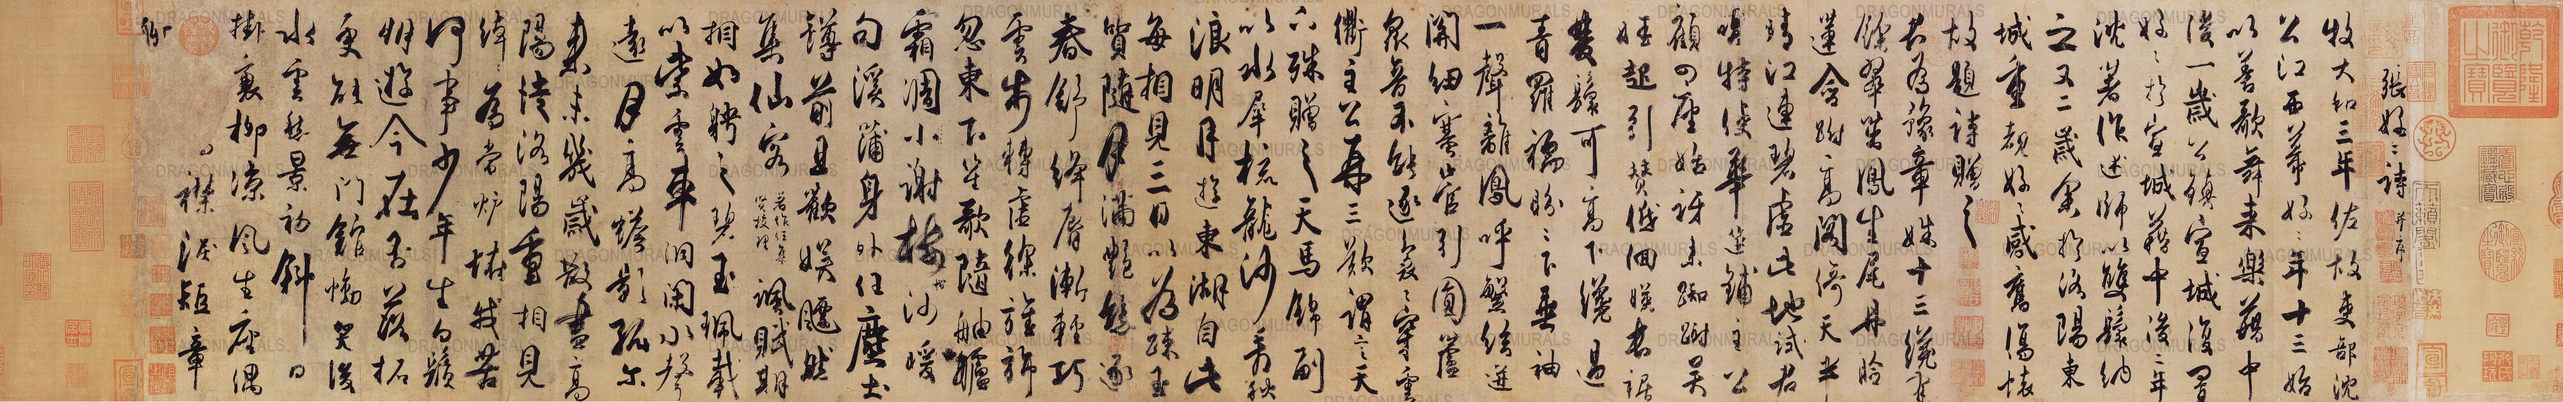 張好好詩 并序
牧大和三年佐故吏部沈
公江西幕好好年十三始
以善歌舞来樂籍中
後一歲公鎮宣城復置
好好於宣城籍中後二年
沈著作述師以雙鬟納
之又二歲余於洛陽東
城重覩好好感舊傷懐
故題詩贈之
君為豫章姝十三纔有
餘翠茁鳳生尾丹臉
蓮含跗高閣倚天半
晴江連碧虛此地試君
唱特使華筵鋪主公
顧四座始訝来踟蹰吳
娃起引贊低佪暎長裾
雙鬟可高下纔過
青羅襦盼盼下垂袖
一聲離鳳呼繁絃迸
關紐塞管引圓蘆
衆音不能逐裊裊穿雲
衢主公再三歎謂言天
下殊贈之天馬錦副
以水犀梳龍沙看秋
浪明月遊東湖自此
每相見三日以為疎玉
質隨月滿艷態逐
春舒絳脣漸輕巧
雲步轉虛徐旌旆
忽東下笙歌隨舳艫
霜凋小謝樹沙暖
句溪蒲身外任塵土
罇前且歡娛飄然
集仙客著作任集賢校理諷賦期
相如聘之碧玉珮載
以紫雲車洞閉水聲
遠月高蟾影孤尔
来未幾歲散盡高
陽徒洛陽重相見
綽綽為當爐怪我苦
何事少年生白鬚
朋遊今在否落拓
更能無門館慟哭後
水雲愁景初斜日
掛衰柳凉風生座隅
襟淚短章
聊
乾隆御覽之寶
DRAGONMURALS